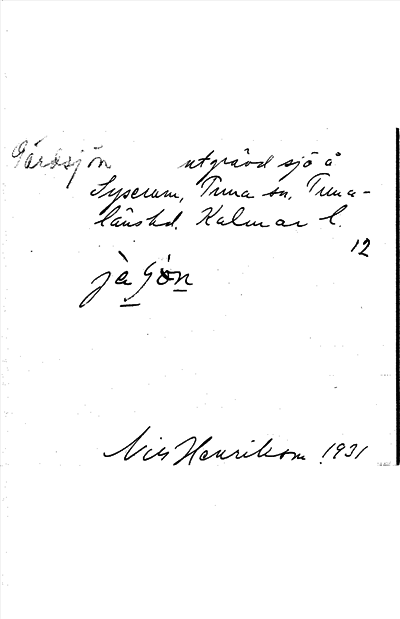 Gårdsjön utgrävd sjö å
Syserum, Tuna sn. Tuna-
läns hd. Kalmar l.
12
Nils Henrikson 1931